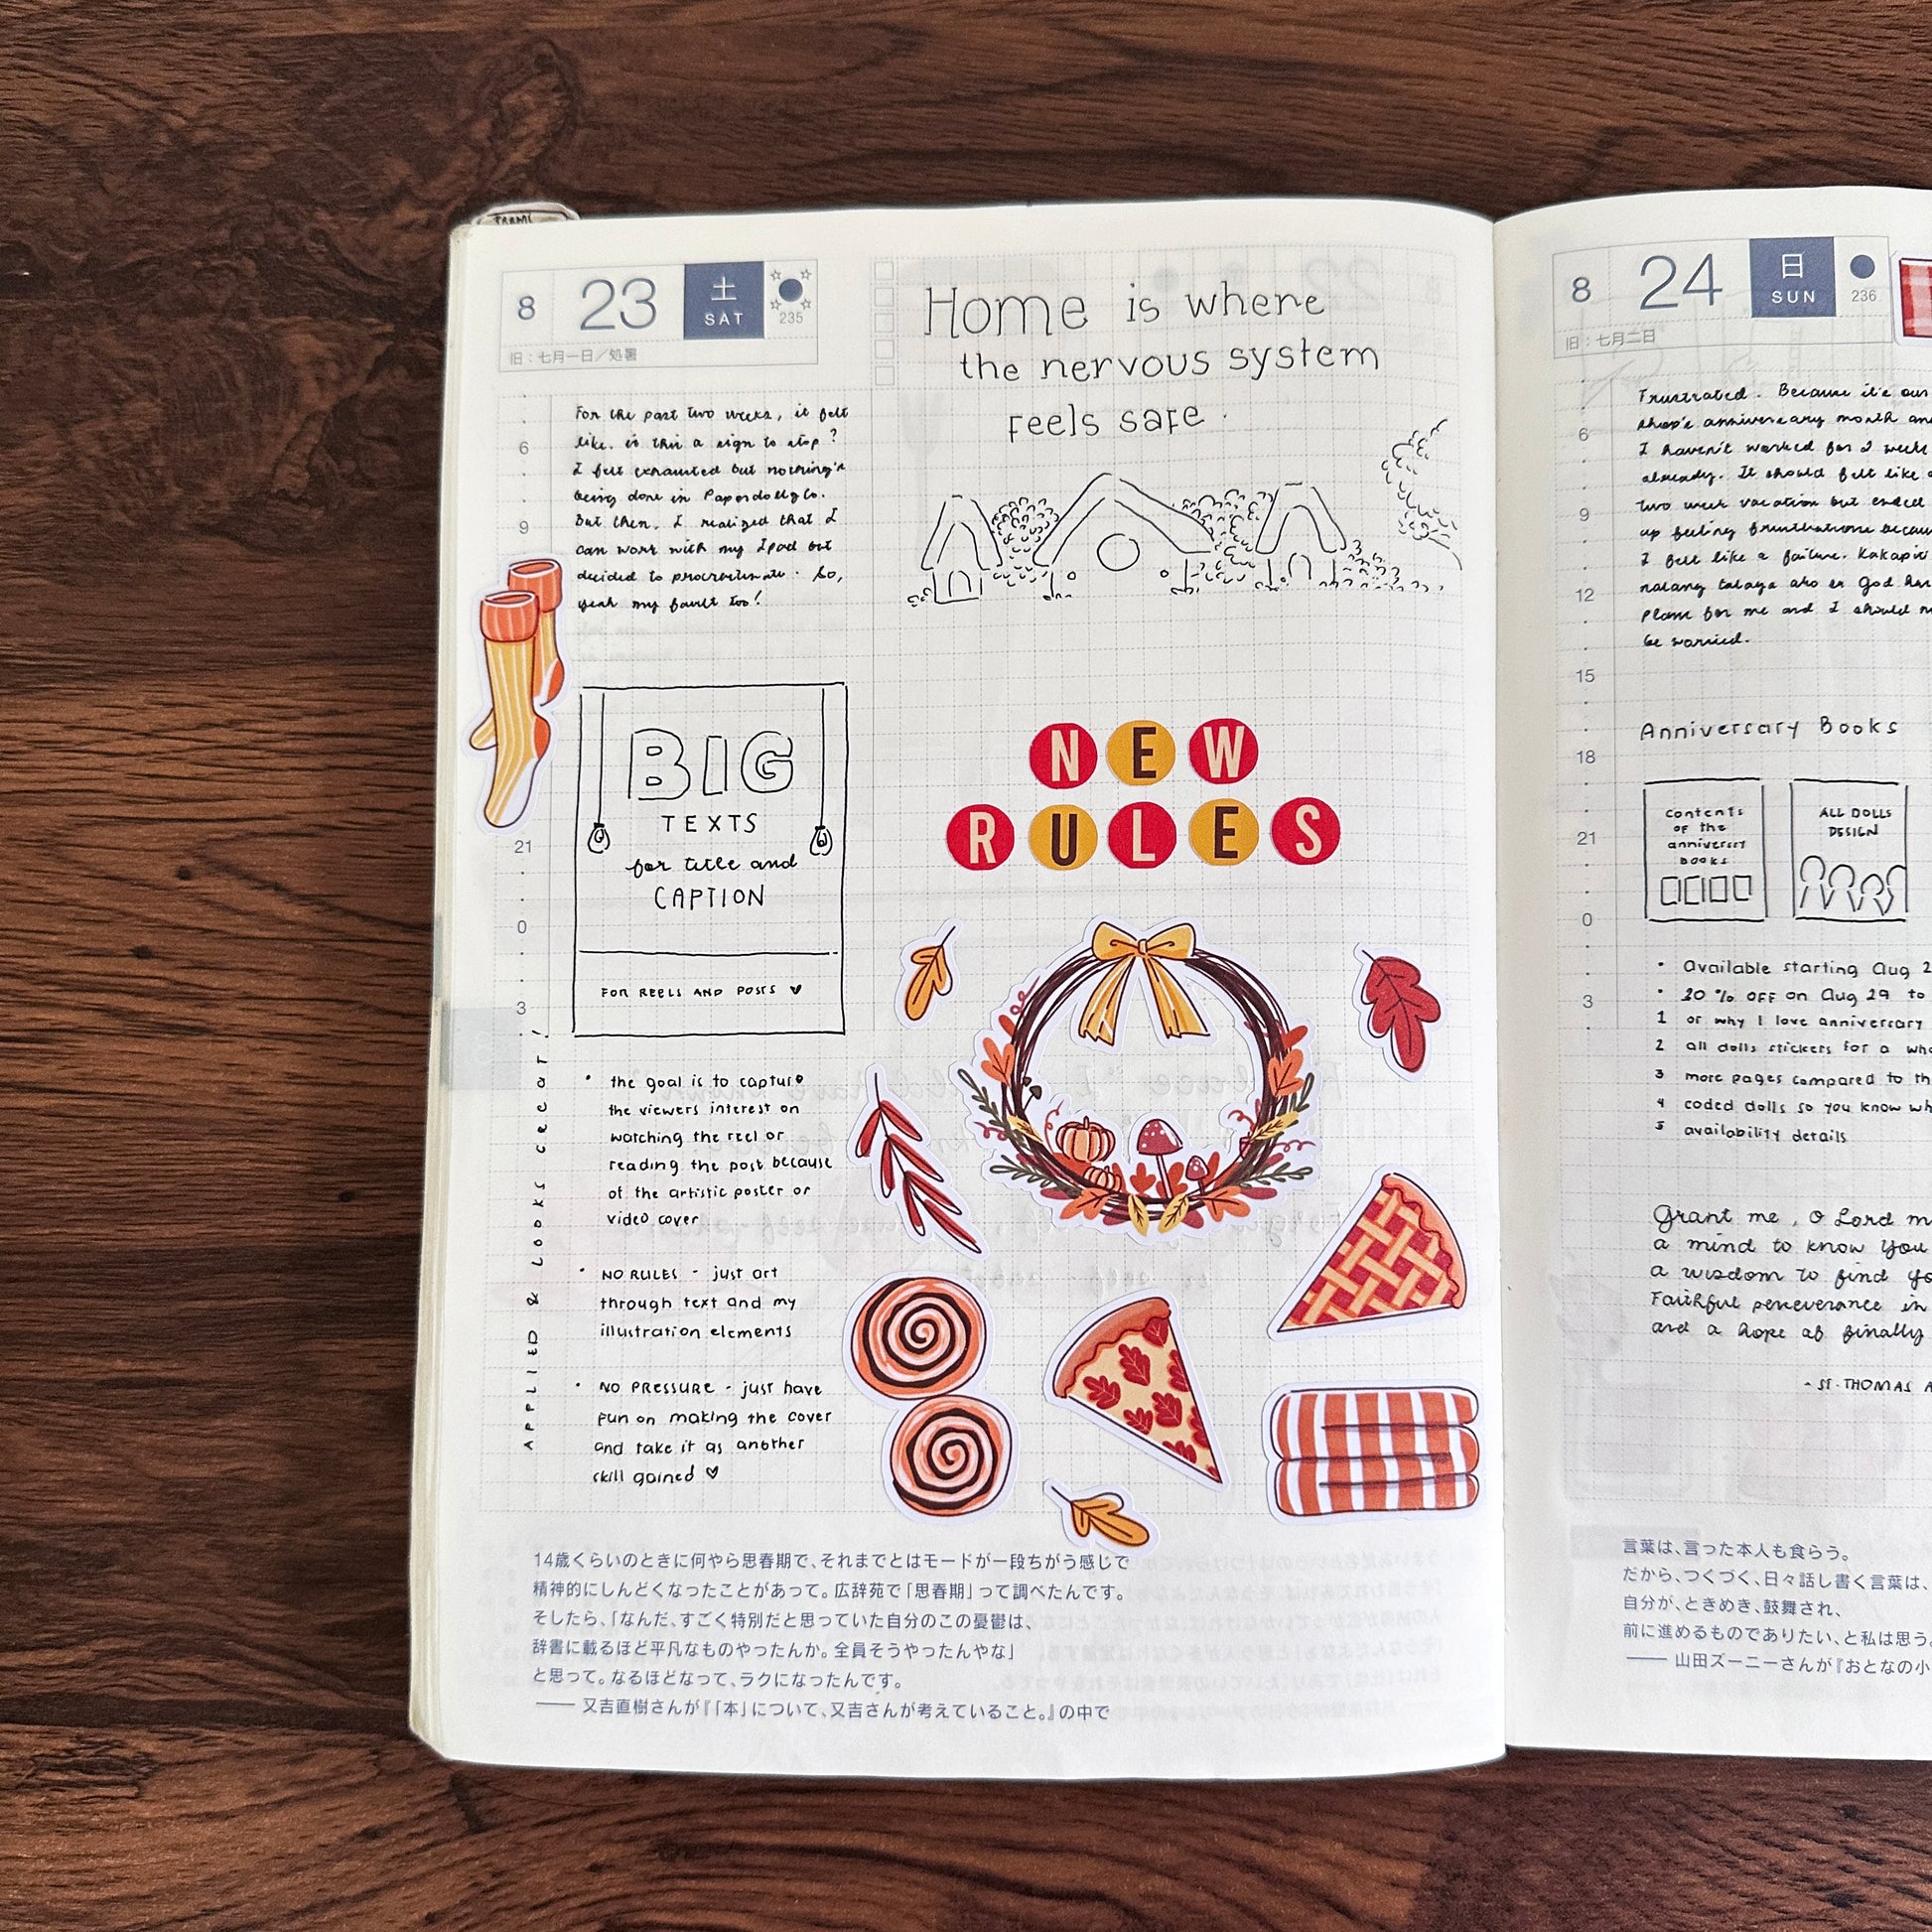 8 23 土 SAT 235
旧:七月一日/処暑
For the past two weeks, it felt
like. is this a sign to stop?
I felt exhausted but nothing's
being done in PaperdollyCo.
But then, I realized that I
can work with my Ipad but
decided to procrastinate. So,
yeah my fault too!
6
9
21
0
3
BIG
TEXTS
for title and
CAPTION
FOR REELS AND POSTS
APPLIED & Looks Great!
• the goal is to capture
the viewers interest on
watching the reel or
reading the post because
of the artistic poster or
video cover
• NO RULES - just art
through text and my
illustration elements
• NO PRESSURE - just have
fun on making the cover
and take it as another
skill gained
Home is where
the nervous system
feels safe.
NEW
RULES
14歳くらいのときに何やら思春期で、それまでとはモードが一段ちがう感じで
精神的にしんどくなったことがあって。広辞苑で「思春期」って調べたんです。
そしたら、「なんだ、すごく特別だと思っていた自分のこの憂鬱は、
辞書に載るほど平凡なものやったんか。全員そうやったんやな」
と思って。なるほどなって、ラクになったんです。
—— 又吉直樹さんが『「本」について、又吉さんが考えていること。』の中で
8 24 日 SUN 236
旧:七月二日
Frustrated. Because it's our
shop's anniversary month and
I haven't worked for 2 weeks
already. It should felt like a
two week vacation but ended
up feeling frustrations because
I felt like a failure. Kakapit
nalang talaga ako er God has
plans for me and I should
be worried.
6
9
12
15
18
21
0
3
Anniversary Books
Contents
of the
anniversary
BOOKS
ALL DOLLS
DESIGN
• Available starting Aug
• 20 % OFF on Aug 29 to
1 or why I love anniversary
2 all dolls stickers for a
3 more pages compared to
4 coded dolls so you know
5 availability details
Grant me, O Lord
a mind to know you
a wisdom to find
Faithful perseverance in
and a hope of finally
- ST. THOMAS
言葉は、言った本人も食らう。
だから、つくづく、日々話し書く言葉は、
自分が、ときめき、鼓舞され、
前に進めるものでありたい、と私は思う。
—— 山田ズーニーさんが『おとなの小